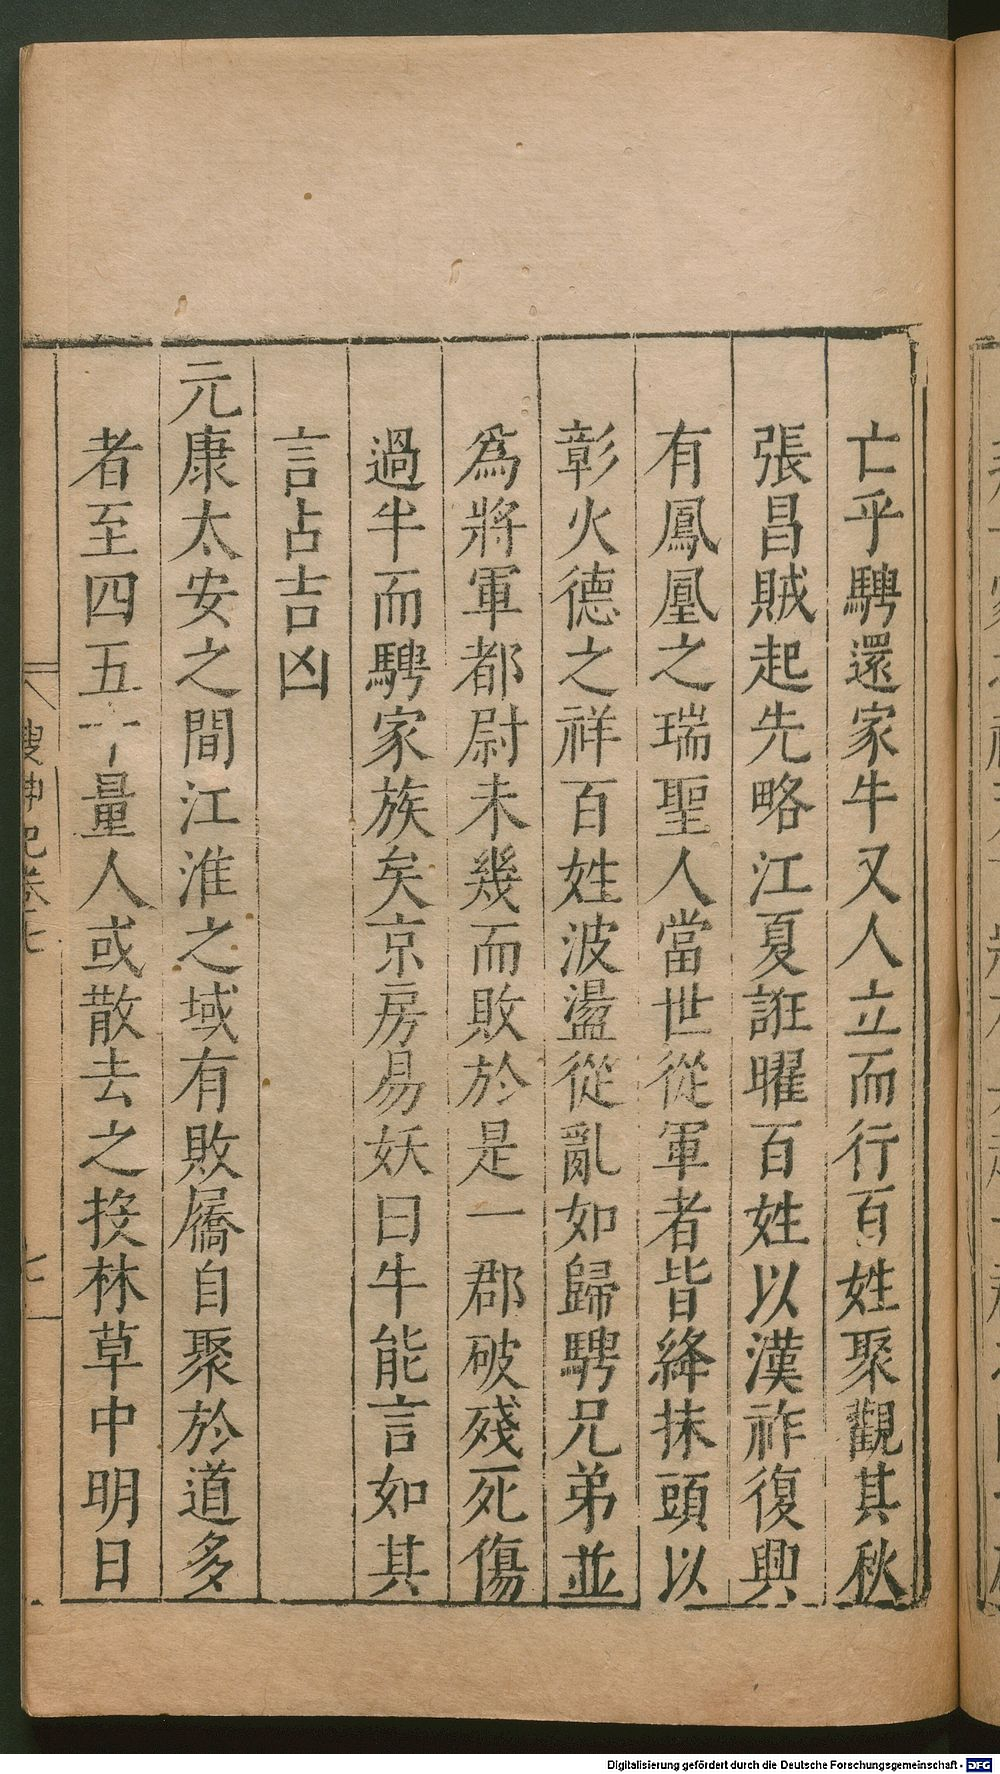 亡乎騁還家牛又人立而行百姓聚觀其秋
張昌賊起先略江夏誑曜百姓以漢祚復興
有鳳凰之瑞聖人當世從軍者皆絳抹頭以
彰火德之祥百姓波盪從亂如歸騁兄弟並
爲將軍都尉未幾而敗於是一郡破殘死傷
過半而騁家族矣京房易妖曰牛能言如其
言占吉凶
元康太安之間江淮之域有敗屩自聚於道多
者至四五十量人或散去之投林草中明日
搜神記卷七
七
Digitalisierung gefördert durch die Deutsche Forschungsgemeinschaft - DFG